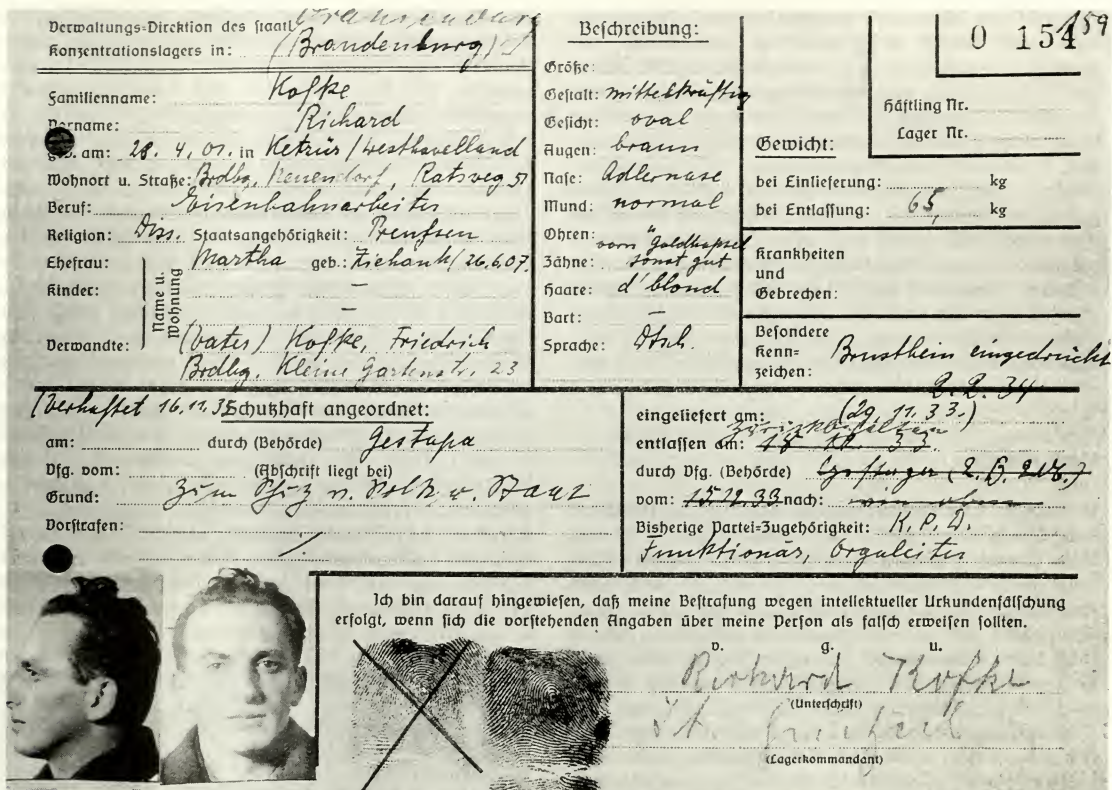 Verwaltungs=Direktion des staatl.
Konzentrationslagers in: (Brandenburg)
Familienname: Kofke
Vorname: Richard
geb. am: 28. 4. 01. in Ketzür / Westhavelland
Wohnort u. Straße: Brdbg. Neuendorf, Ratsweg 51
Beruf: Eisenbahnarbeiter
Religion: Diss. Staatsangehörigkeit: Preußen
Ehefrau: Martha geb.: Ziehank / 26.6.07.
Kinder: –
–
Name u. Wohnung
Verwandte: (Vater) Kofke, Friedrich
Brdbg. Kleine Gartenstr. 23
Beschreibung:
Größe:
Gestalt: mittelkräftig
Gesicht: oval
Augen: braun
Nase: Adlernase
Mund: normal
Ohren:
Zähne: vorn Goldkapsel sonst gut
Haare: d'blond
Bart: –
Sprache: Dtsch.
0 154
159
Häftling Nr.
Lager Nr.
Gewicht:
bei Einlieferung: kg
bei Entlassung: 65, kg
Krankheiten
und
Gebrechen:
Besondere
Kenn=
zeichen: Brustbein eingedrückt
2.2.34
(Verhaftet 16.11.33 Schutzhaft angeordnet:
am: durch (Behörde) Gestapa
Vfg. vom: (Abschrift liegt bei)
Grund: Zum Schutz v. Volk u. Staat
Vorstrafen:
/.
eingeliefert am: (29.11.33.)
entlassen am:
durch Vfg. (Behörde)
vom: 15.12.33 nach:
Bisherige Partei=Zugehörigkeit: K.P.D.
Funktionär, Orgaleiter
Ich bin darauf hingewiesen, daß meine Bestrafung wegen intellektueller Urkundenfälschung
erfolgt, wenn sich die vorstehenden Angaben über meine Person als falsch erweisen sollten.
v. g. u.
Richard Kofke
(Unterschrift)
(Lagerkommandant)